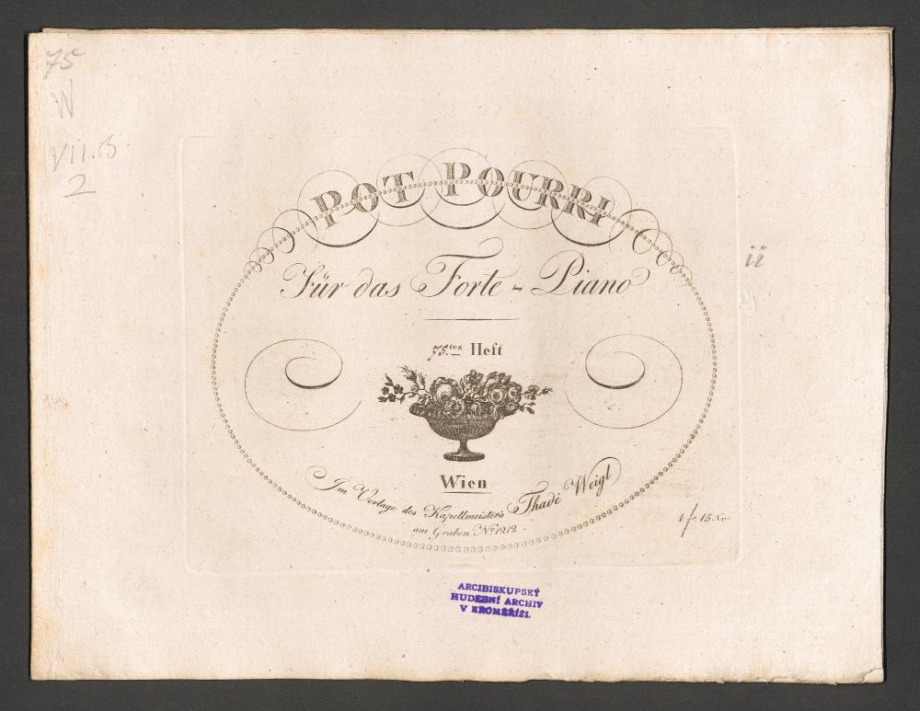 75
W
VII.B
2
POT POURRI
Für das Forte-Piano
ii
75.tes Heft
Wien
Im Verlage des Kapellmeisters Thadé Weigl
am Graben Nº 1212.
1 f. 15 Xr
ARCIBISKUPSKÝ
HUDEBNÍ ARCHIV
V KROMĚŘÍŽI.